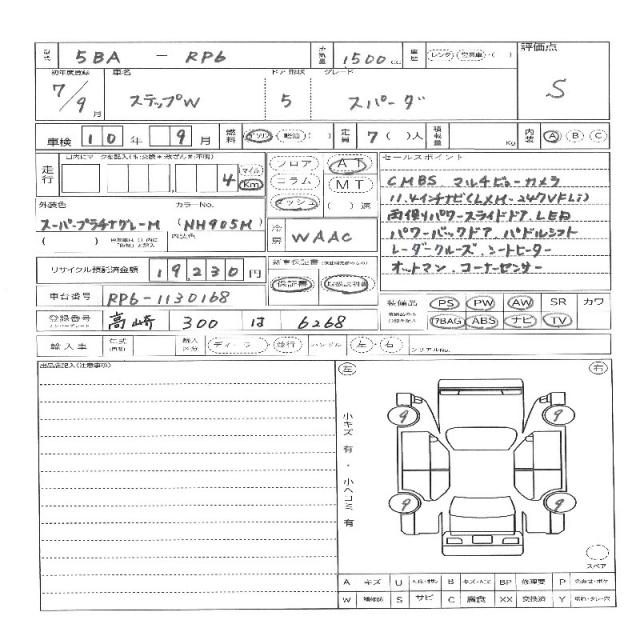 型式 5BA - RP6 排気量 1500 cc 車歴 レンタ 自家車 ( ) 評価点
初年度登録 車名 ドア 形状 グレード
7/9月 ステップW 5 スパーダ S
車検 10年 9月 燃料 ガソリン 軽油 ( ) 定員 7( )人 積載量 Kg 内装 A B C
走行 4 マイル Km フロア コラム AT MT ( )速 セールスポイント
CMBS. マルチビューカメラ
11.4インチナビ(LXM-247VFLi)
両側パワースライドドア. LED
パワーバックドア. パドルシフト
レーダークルーズ. シートヒーター
オットマン. コーナーセンサー
外装色 カラーNo.
スーパープラチナグレーM (NH905M) 冷房 WAAC
内装色
リサイクル預託済金額 19,230円 新車保証書 保証書 取扱説明書
車台番号 RP6-1130168
装備品 PS PW AW SR カワ
登録番号 高崎 300 は 6268 7BAG ABS ナビ TV
輸入車 年式 輸入区分 ディーラー 並行 ハンドル 左 右 シリアルNo.
出品店記入(注意事項) 左 右
小キズ有・小ヘコミ有
9 9
9 9
スペア
A キズ U B キズ・ヘコミ BP 修理要 P
W 補修跡 S サビ C 腐食 XX 交換済 Y